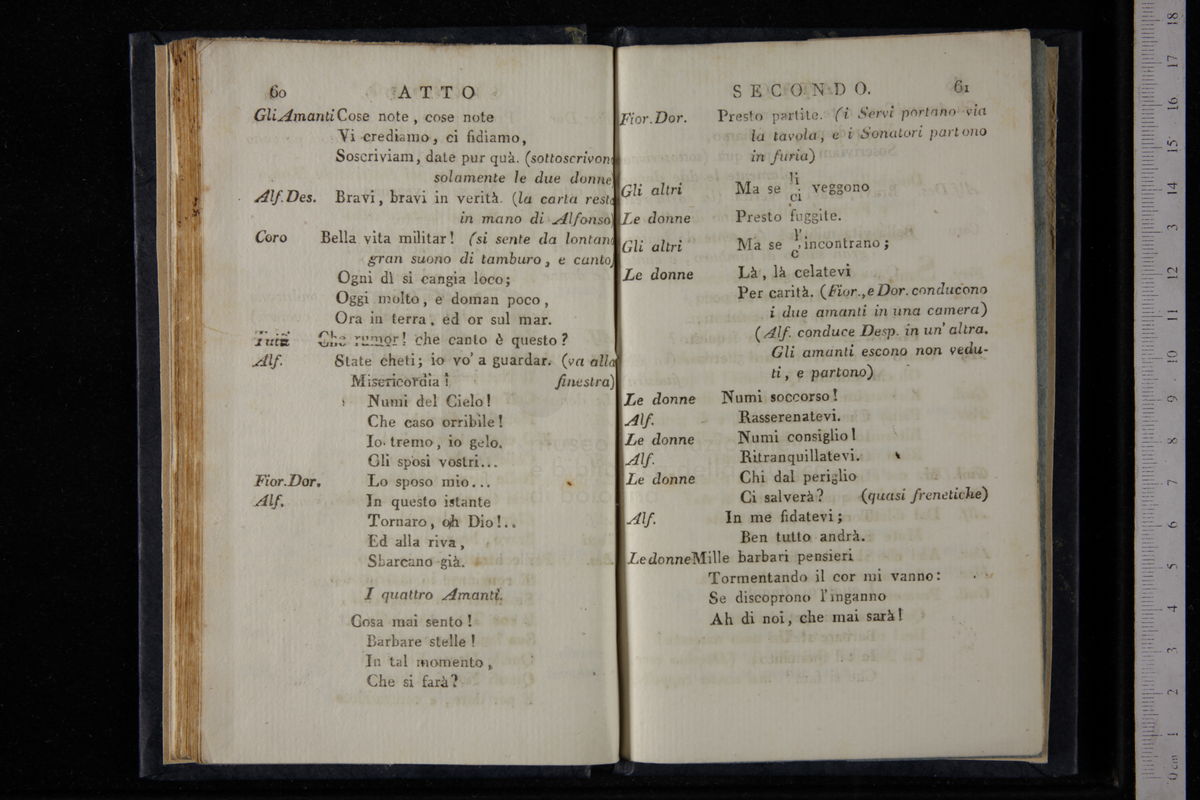 60 ATTO
Gli Amanti Cose note, cose note
Vi crediamo, ci fidiamo,
Soscriviam, date pur quà. (sottoscrivon
solamente le due donne)
Alf. Des. Bravi, bravi in verità. (la carta resta
in mano di Alfonso)
Coro Bella vita militar! (si sente da lontan
gran suono di tamburo, e canto)
Ogni dì si cangia loco;
Oggi molto, e doman poco,
Ora in terra, ed or sul mar.
Tutti Che rumor! che canto è questo?
Alf. State cheti; io vo' a guardar. (va alla
Misericordia! finestra)
Numi del Cielo!
Che caso orribile!
Io tremo, io gelo.
Gli sposi vostri...
Fior. Dor. Lo sposo mio...
Alf. In questo istante
Tornaro, oh Dio!..
Ed alla riva,
Sbarcano già.
I quattro Amanti.
Cosa mai sento!
Barbare stelle!
In tal momento,
Che si farà?
SECONDO. 61
Fior. Dor. Presto partite. (i Servi portano via
la tavola, e i Sonatori partono
in furia)
Gli altri Ma se li veggono
ci
Le donne Presto fuggite.
Gli altri Ma se l'incontrano;
c'
Le donne Là, là celatevi
Per carità. (Fior., e Dor. conducono
i due amanti in una camera)
(Alf. conduce Desp. in un' altra.
Gli amanti escono non vedu-
ti, e partono)
Le donne Numi soccorso!
Alf. Rasserenatevi.
Le donne Numi consiglio!
Alf. Ritranquillatevi.
Le donne Chi dal periglio
Ci salverà? (quasi frenetiche)
Alf. In me fidatevi;
Ben tutto andrà.
Le donne Mille barbari pensieri
Tormentando il cor mi vanno:
Se discoprono l'inganno
Ah di noi, che mai sarà!